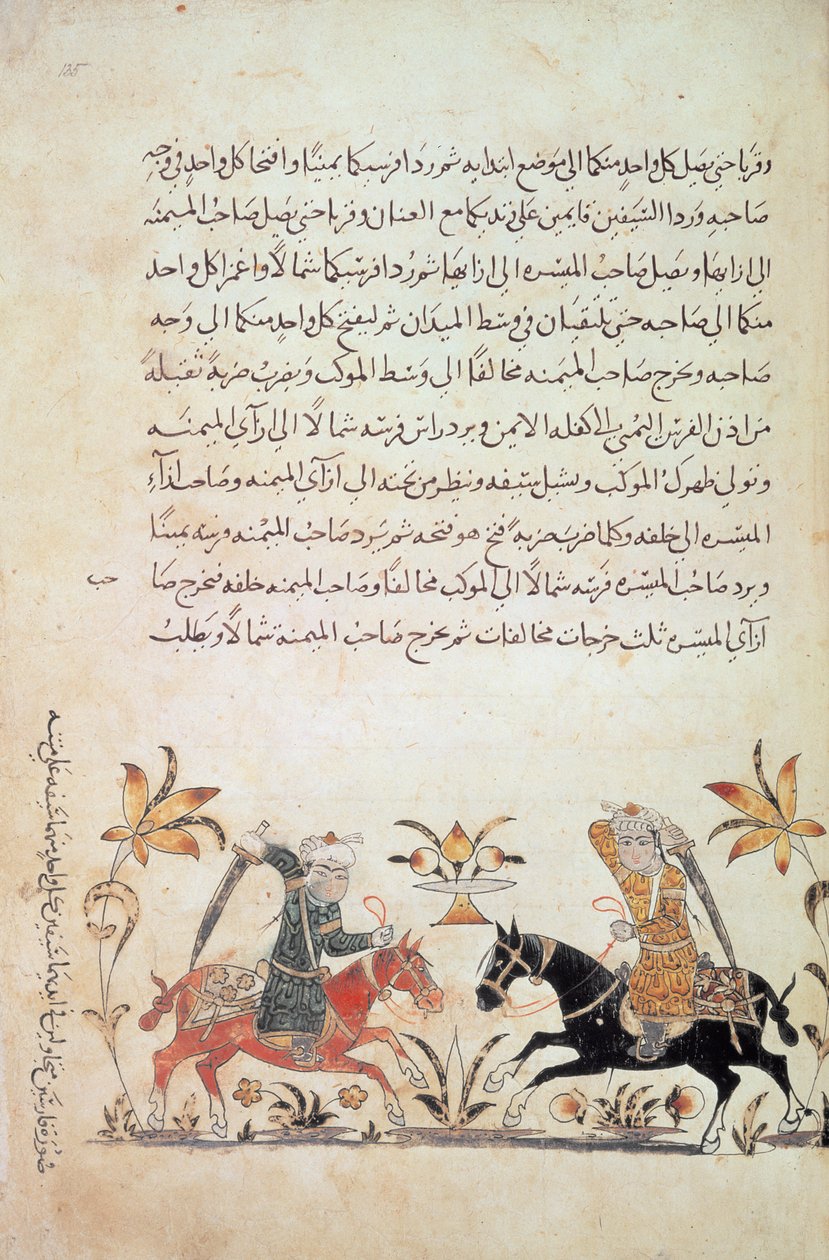 135
وقربا حتى يصل كل واحد منكما الى موضع ابتدايه ثم ردا فرسيكما يمينًا وافتحا كل واحد في وجه
صاحبه وردا السيفين قايمين على زنديكما مع العنان وقربا حتى يصل صاحب الميمنه
الى ازايها ويصل صاحب الميسره الى ازايها ثم ردا فرسيكما شمالًا واغمزا كل واحد
منكما الى صاحبه حتى تلتقيان في وسط الميدان ثم ليفتح كل واحد منكما الى وجه
صاحبه ويخرج صاحب الميمنه مخالفًا الى وسط الموكب ويضرب ضربةً ثقيلةً
من اذن الفرس اليمنى الى كفله الايمن ويرد راس فرسه شمالًا الى ازآي الميمنه
وتولي ظهرك الموكب وتشيل سيفه وتنظر من تحته الى ازآي الميمنه وصاحب ازآء
الميسره الى خلفه وكلما ضرب ضربةً فتح هو فتحه ثم يرد صاحب الميمنه فرسه يمينًا
ويرد صاحب الميسره فرسه شمالًا الى الموكب مخالفًا وصاحب الميمنه خلفه فيخرج صا حب
ازآي الميسره ثلث خرجات مخالفات ثم يخرج صاحب الميمنة شمالًا ويطلب
صورة فارسين متجاولين في ايديهما سيفين كل واحد منهما سيفه على